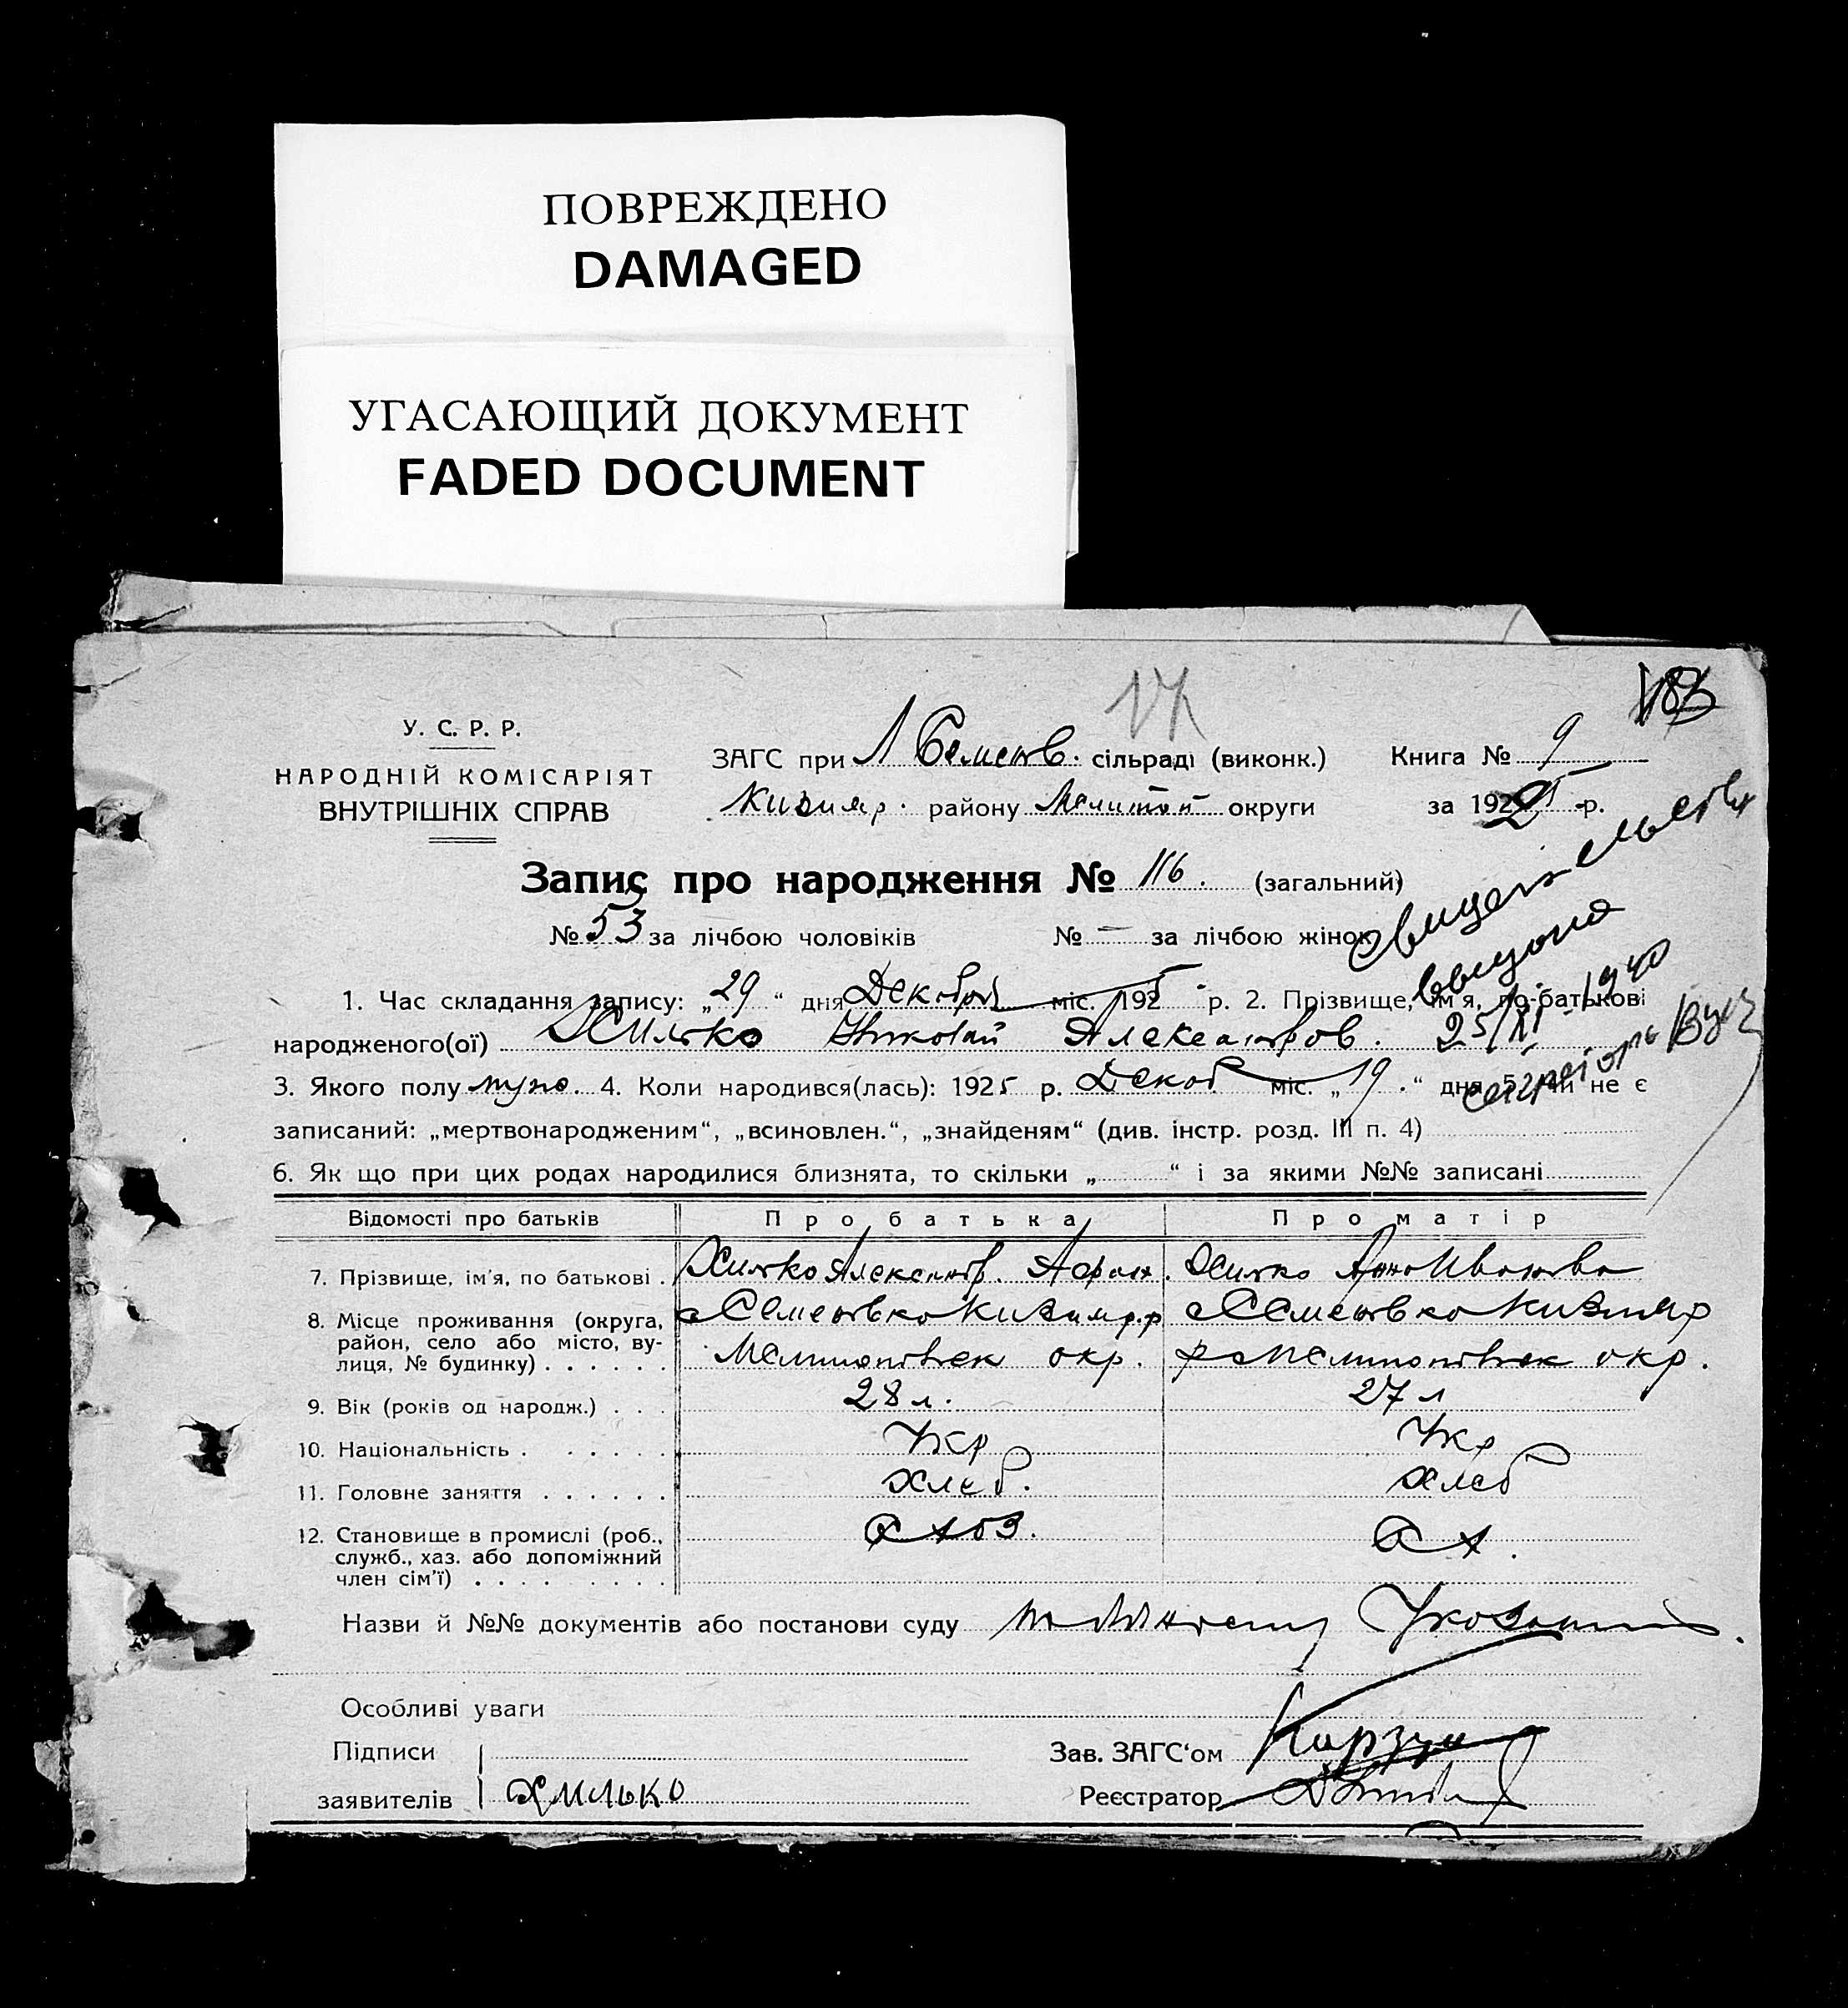 ПОВРЕЖДЕНО
DAMAGED
УГАСАЮЩИЙ ДОКУМЕНТ
FADED DOCUMENT
17
У. С. Р. Р.
НАРОДНІЙ КОМІСАРІЯТ
ВНУТРІШНІХ СПРАВ
ЗАГС при Семенв. сільраді (виконк.)
Книга № 9
району Мелитоп округи
за 1925 р.
Запис про народження № 116. (загальний)
№ 53 за лічбою чоловіків № — за лічбою жінок
1. Час складання запису: „29“ дня Декабря міс. 1925 р. 2. Прізвище, ім'я, по-батькові
народженого(ої) Хмлько Николай Александров.
25/XI-1940
3. Якого полу муж. 4. Коли народився(лась): 1925 р. Декаб міс. „19.“ дня 5. Чи не є
записаний: „мертвонародженим“, „всиновлен.“, „знайденям“ (див. інстр. розд. III п. 4)
6. Як що при цих родах народилися близнята, то скільки „ “ і за якими №№ записані
Відомості про батьків Про батька Про матір
7. Прізвище, ім'я, по батькові . Хмлько Александр. Афан. Хмлько Анна Ивановна
8. Місце проживання (округа, с Семеновка Кизияр. р с Семеновка Кизияр
район, село або місто, ву-
лиця, № будинку) . . . . . . Мелитопольск окр. р Мелитопольск окр.
9. Вік (років од народж.) . . . 28 л. 27 л
10. Національність . . . . . . Укр Укр
11. Головне заняття . . . . . . Хлеб. Хлеб
12. Становище в промислі (роб.,
служб., хаз. або допоміжний
член сім'ї) . . . . . . . .
Назви й №№ документів або постанови суду
Особливі уваги
Підписи
Зав. ЗАГС'ом
заявителів Хмилько
Реєстратор